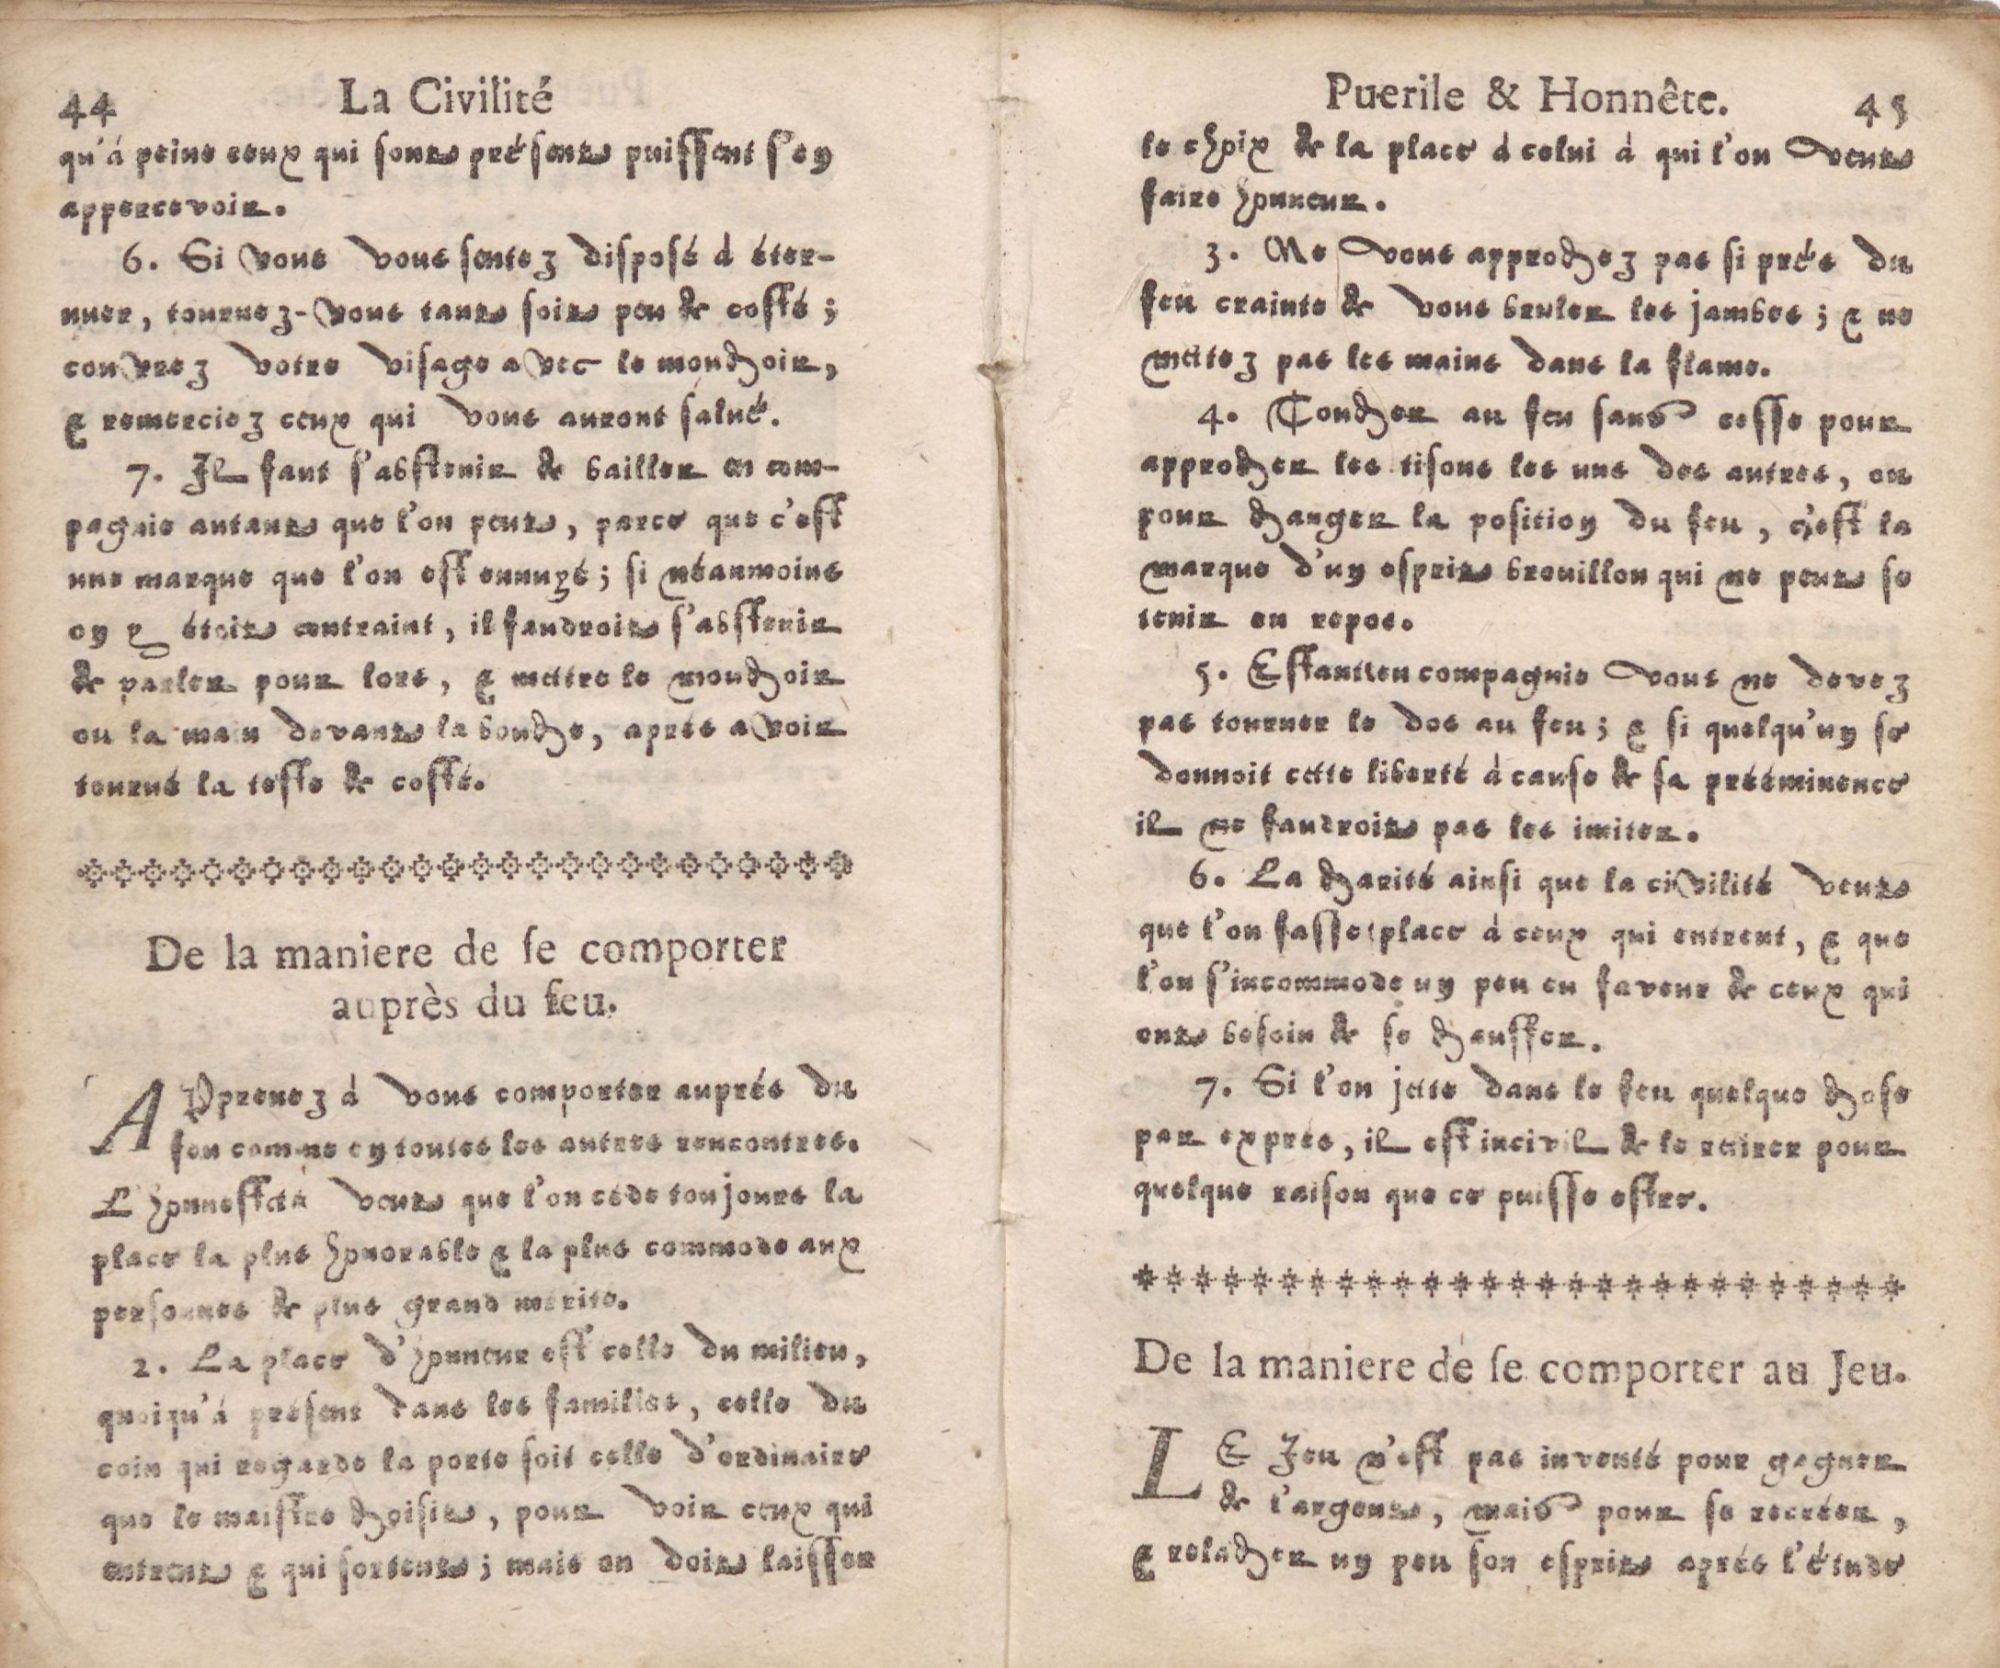 44 La Civilité
qu'à peine ceux qui sont présents puissent s'en
appercevoir.
6. Si vous vous sentez disposé à éter-
nuer, tournez-vous tant soit peu de costé ;
couvrez votre visage avec le mouchoir,
& remerciez ceux qui vous auront salué.
7. Il faut s'abstenir de bailler en com-
pagnie autant que l'on peut, parce que c'est
une marque que l'on est ennuyé ; si néanmoins
on y étoit contraint, il faudroit s'abstenir
de parler pour lors, & mettre le mouchoir
ou la main devant la bouche, aprés avoir
tourné la teste de costé.
De la maniere de se comporter
auprès du feu.
APprenez à vous comporter auprés du
feu comme en toutes les autres rencontres.
L'honnesteté veut que l'on cède toujours la
place la plus honorable & la plus commode aux
personnes de plus grand mérite.
2. La place d'honneur est celle du milieu,
quoiqu'à présent dans les familles, celle du
coin qui regarde la porte soit celle d'ordinaire
que le maistre choisit, pour voir ceux qui
entrent & qui sortent ; mais on doit laisser
Puerile & Honnête. 45
le choix de la place à celui à qui l'on veut
faire honneur.
3. Ne vous approchez pas si prés du
feu crainte de vous bruler les jambes ; & ne
mettez pas les mains dans la flame.
4. Toucher au feu sans cesse pour
approcher les tisons les uns des autres, ou
pour changer la position du feu, c'est la
marque d'un esprit brouillon qui ne peut se
tenir en repos.
5. Estant en compagnie vous ne devez
pas tourner le dos au feu ; & si quelqu'un se
donnoit cette liberté à cause de sa prééminence
il ne faudroit pas les imiter.
6. La charité ainsi que la civilité veut
que l'on fasse place à ceux qui entrent, & que
l'on s'incommode un peu en faveur de ceux qui
ont besoin de se chauffer.
7. Si l'on jette dans le feu quelque chose
par exprés, il est incivil de le retirer pour
quelque raison que ce puisse estre.
De la maniere de se comporter au Jeu.
LE Jeu n'est pas inventé pour gagner
de l'argent, mais pour se recréer,
& relacher un peu son esprit aprés l'étude